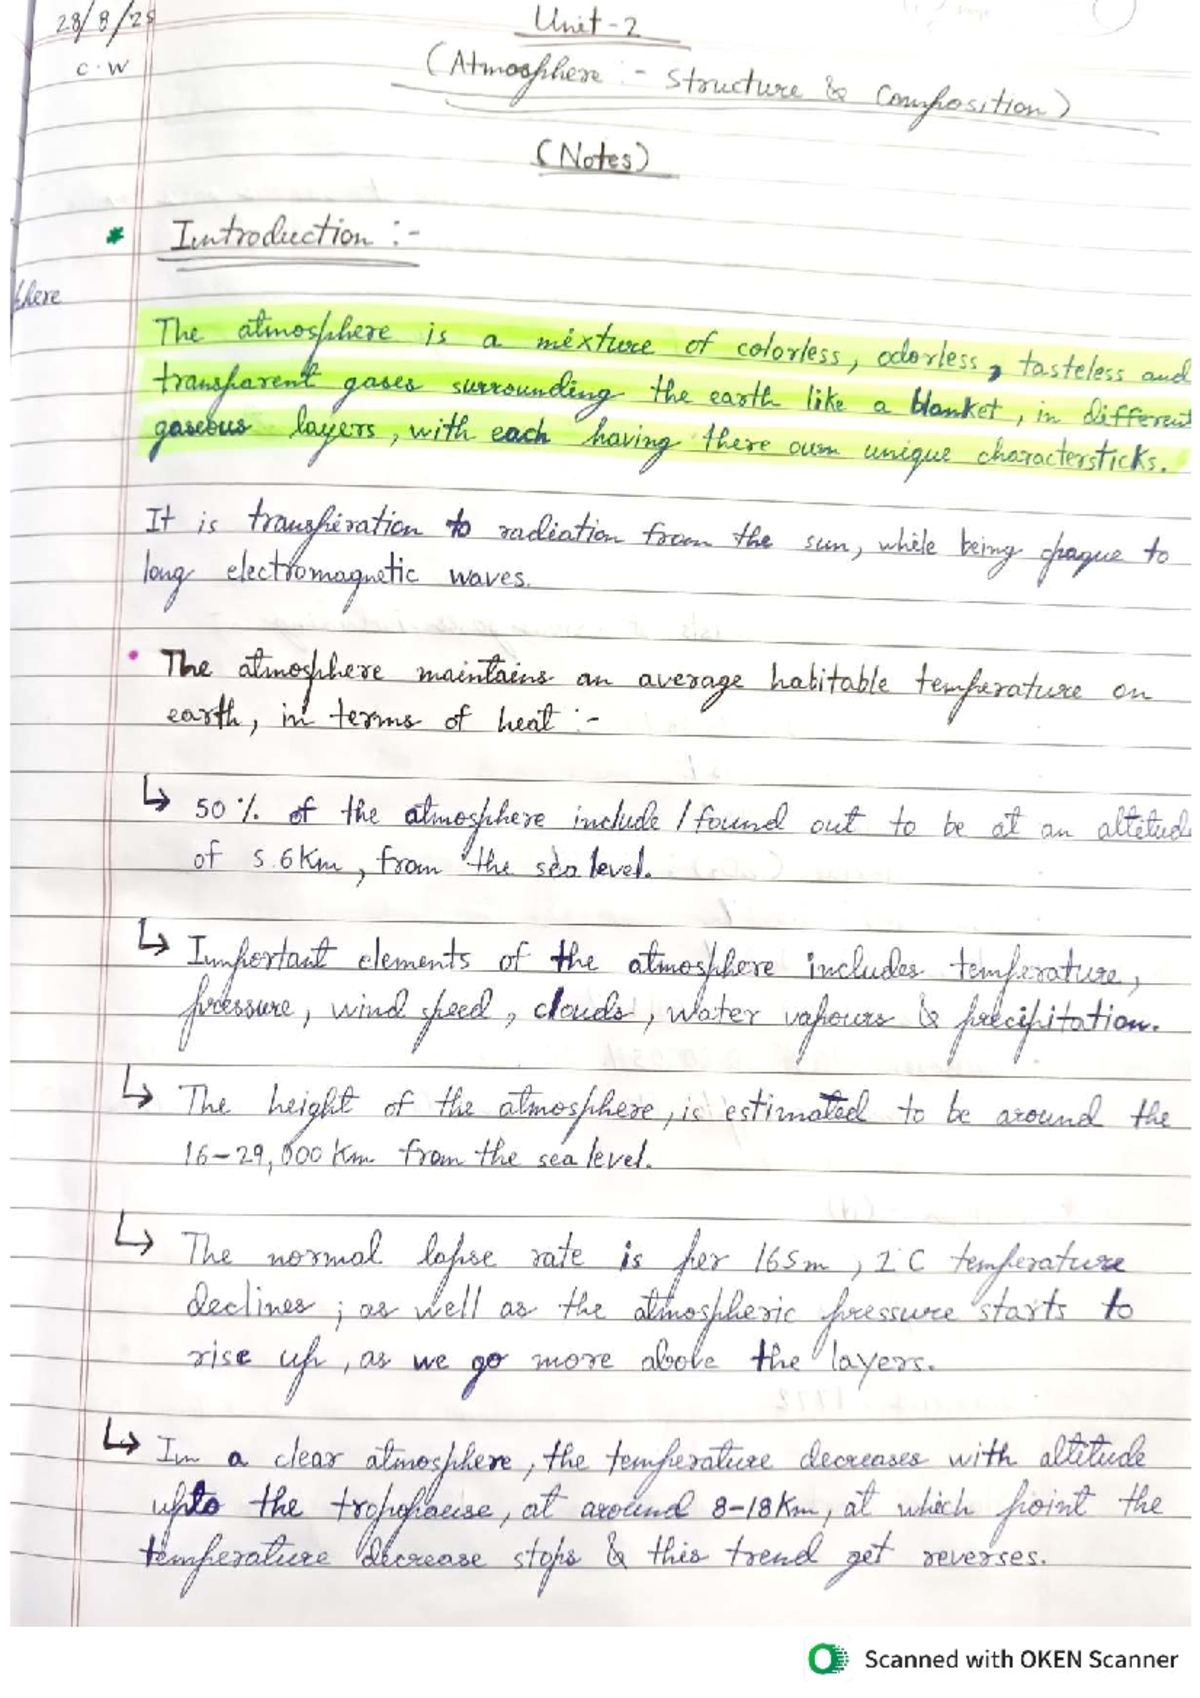 28/8/25
C.W
Unit-2
(Atmosphere :- Structure & Composition)
(Notes)
* Introduction :-
here
The atmosphere is a mixture of colorless, odorless, tasteless and
transparent gases surrounding the earth like a blanket, in different
gaseous layers, with each having there own unique charactersticks.
It is transpiration to radiation from the sun, while being opaque to
long electromagnetic waves.
• The atmosphere maintains an average habitable temperature on
earth, in terms of heat :-
↳ 50 % of the atmosphere include / found out to be at an altitude
of 5.6 Km, from the sea level.
↳ Important elements of the atmosphere includes temperature,
pressure, wind speed, clouds, water vapours & precipitation.
↳ The height of the atmosphere, is estimated to be around the
16-29,000 Km from the sea level.
↳ The normal lapse rate is per 165m, 1°C temperature
declines ; as well as the atmospheric pressure starts to
rise up, as we go more above the layers.
↳ In a clear atmosphere, the temperature decreases with altitude
upto the tropopause, at around 8-18 Km, at which point the
temperature decrease stops & this trend get reverses.
Scanned with OKEN Scanner